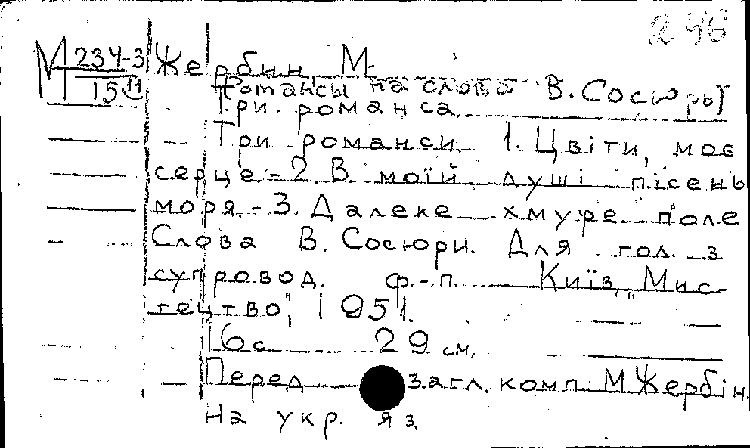 246
М 234-3 Жербин М.
15 11 Романсы на слова В. Сосюры
Три романса
Три романси. 1. Цвіти, моє
серце - 2. В моїй душі пісень
моря - 3. Далеке хмуре поле
Слова В. Сосюри. Для гол. з
супровод. ф.-п. Київ, "Мис-
тецтво", 1951.
16 с. 29 см.
Перед загл. комп. М. Жербін.
На укр. яз.